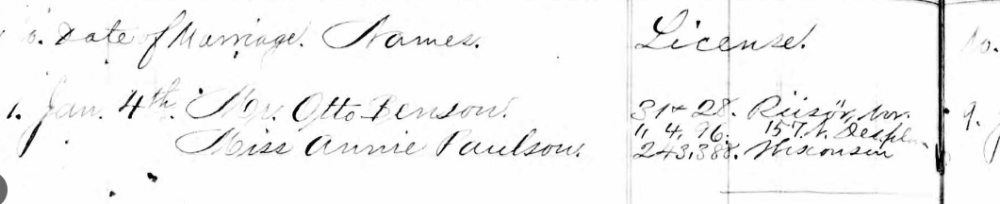 o. Date of Marriage. Names. License. No.
1. Jan. 4th. Mr. Otto Benson. 31 + 28. Riisör, Nor. 9.
Miss Annie Paulson. 1, 4, 96. 157 N. Despl
243,388. Wisconsin